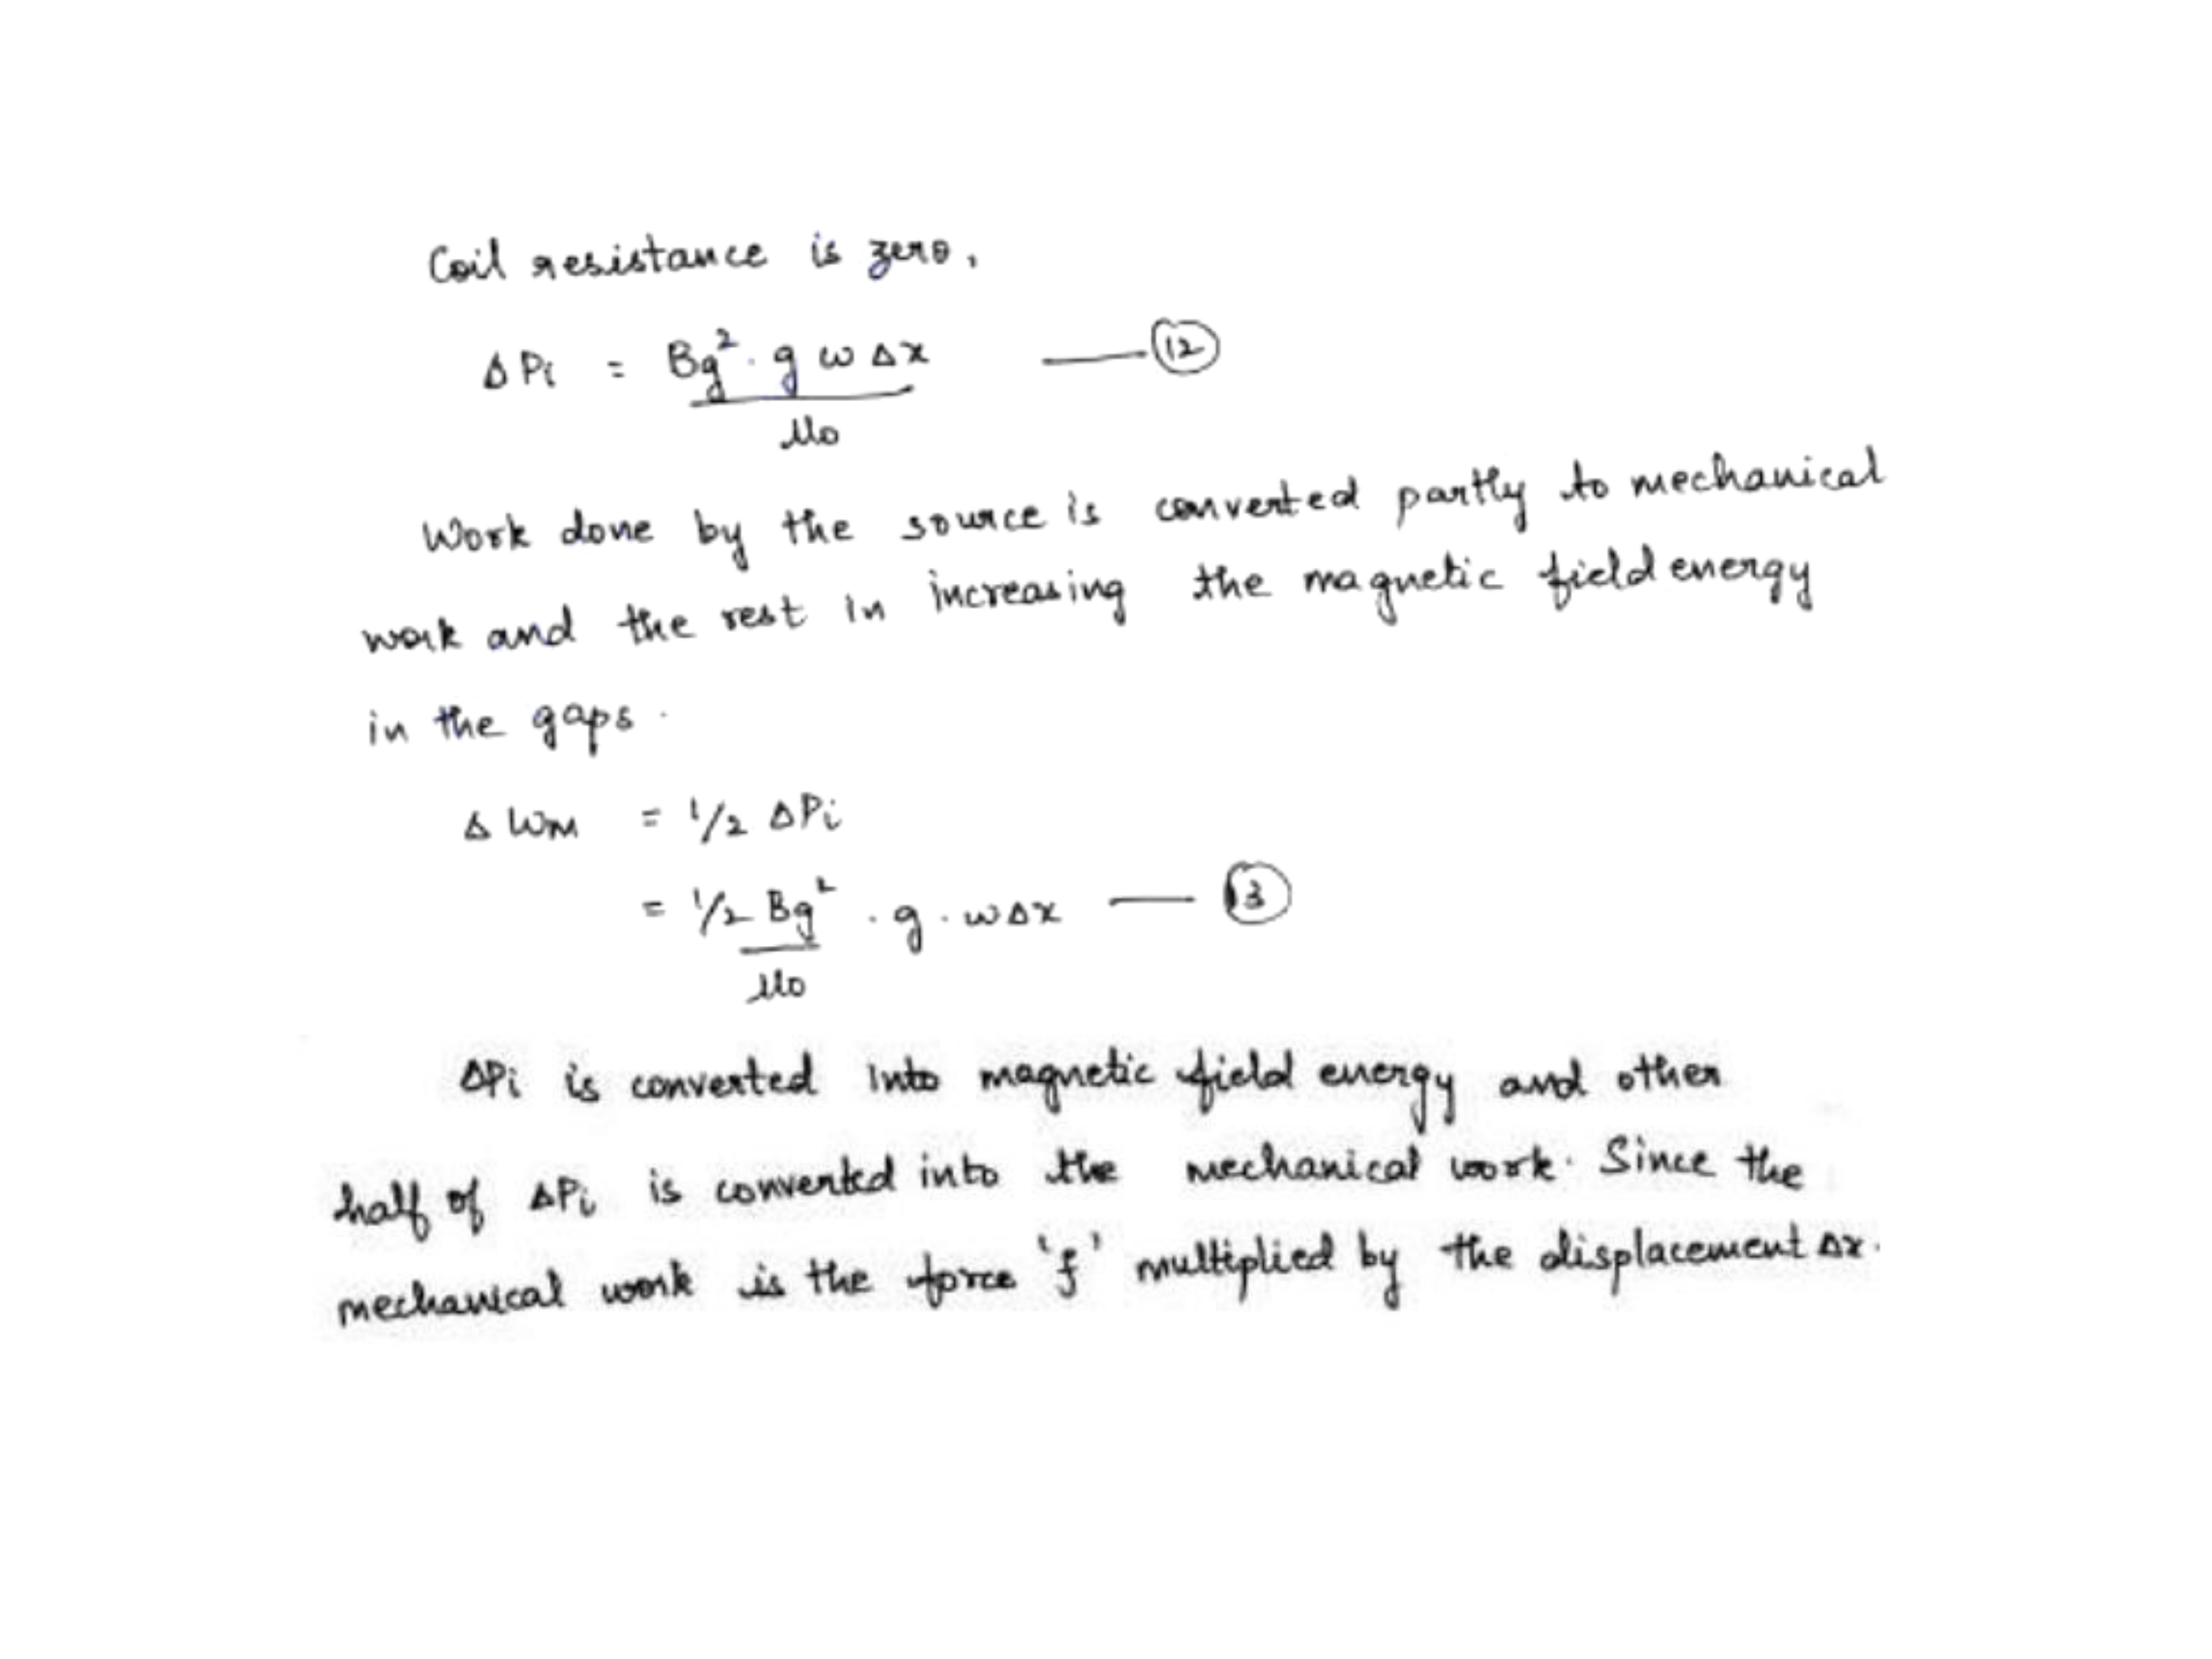 Coil resistance is zero,
ΔPi = Bg². g ω Δx / μ0 —— (12)
Work done by the source is converted partly to mechanical
work and the rest in increasing the magnetic field energy
in the gaps.
Δ WM = 1/2 ΔPi
= 1/2 Bg² / μ0 . g . ωΔx —— (13)
ΔPi is converted into magnetic field energy and other
half of ΔPi is converted into the mechanical work. Since the
mechanical work is the force 'f' multiplied by the displacement Δx.